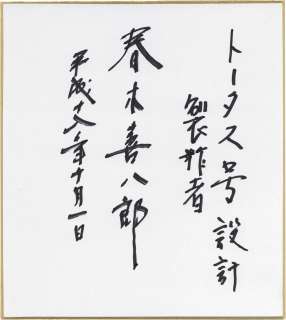 トータス号設計
製作者
春木喜八郎
平成十八年十月一日